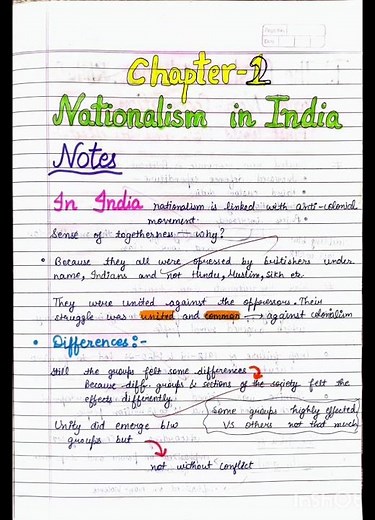 Chapter-2
Nationalism in India
Notes
In India nationalism is linked with anti-colonial
movement.
Sense of togetherness — why?
• Because they all were opressed by britishers under
name, Indians and not Hindu, Muslim, Sikh etc.
They were united against the oppressors. Their
struggle was united and common → against colonialism
• Differences:-
Still the groups felt some differences
Because diff. groups & sections of the society felt the
effects differently.
some groups highly effected
Vs others not that much
Unity did emerge b/w
groups but
not without conflict